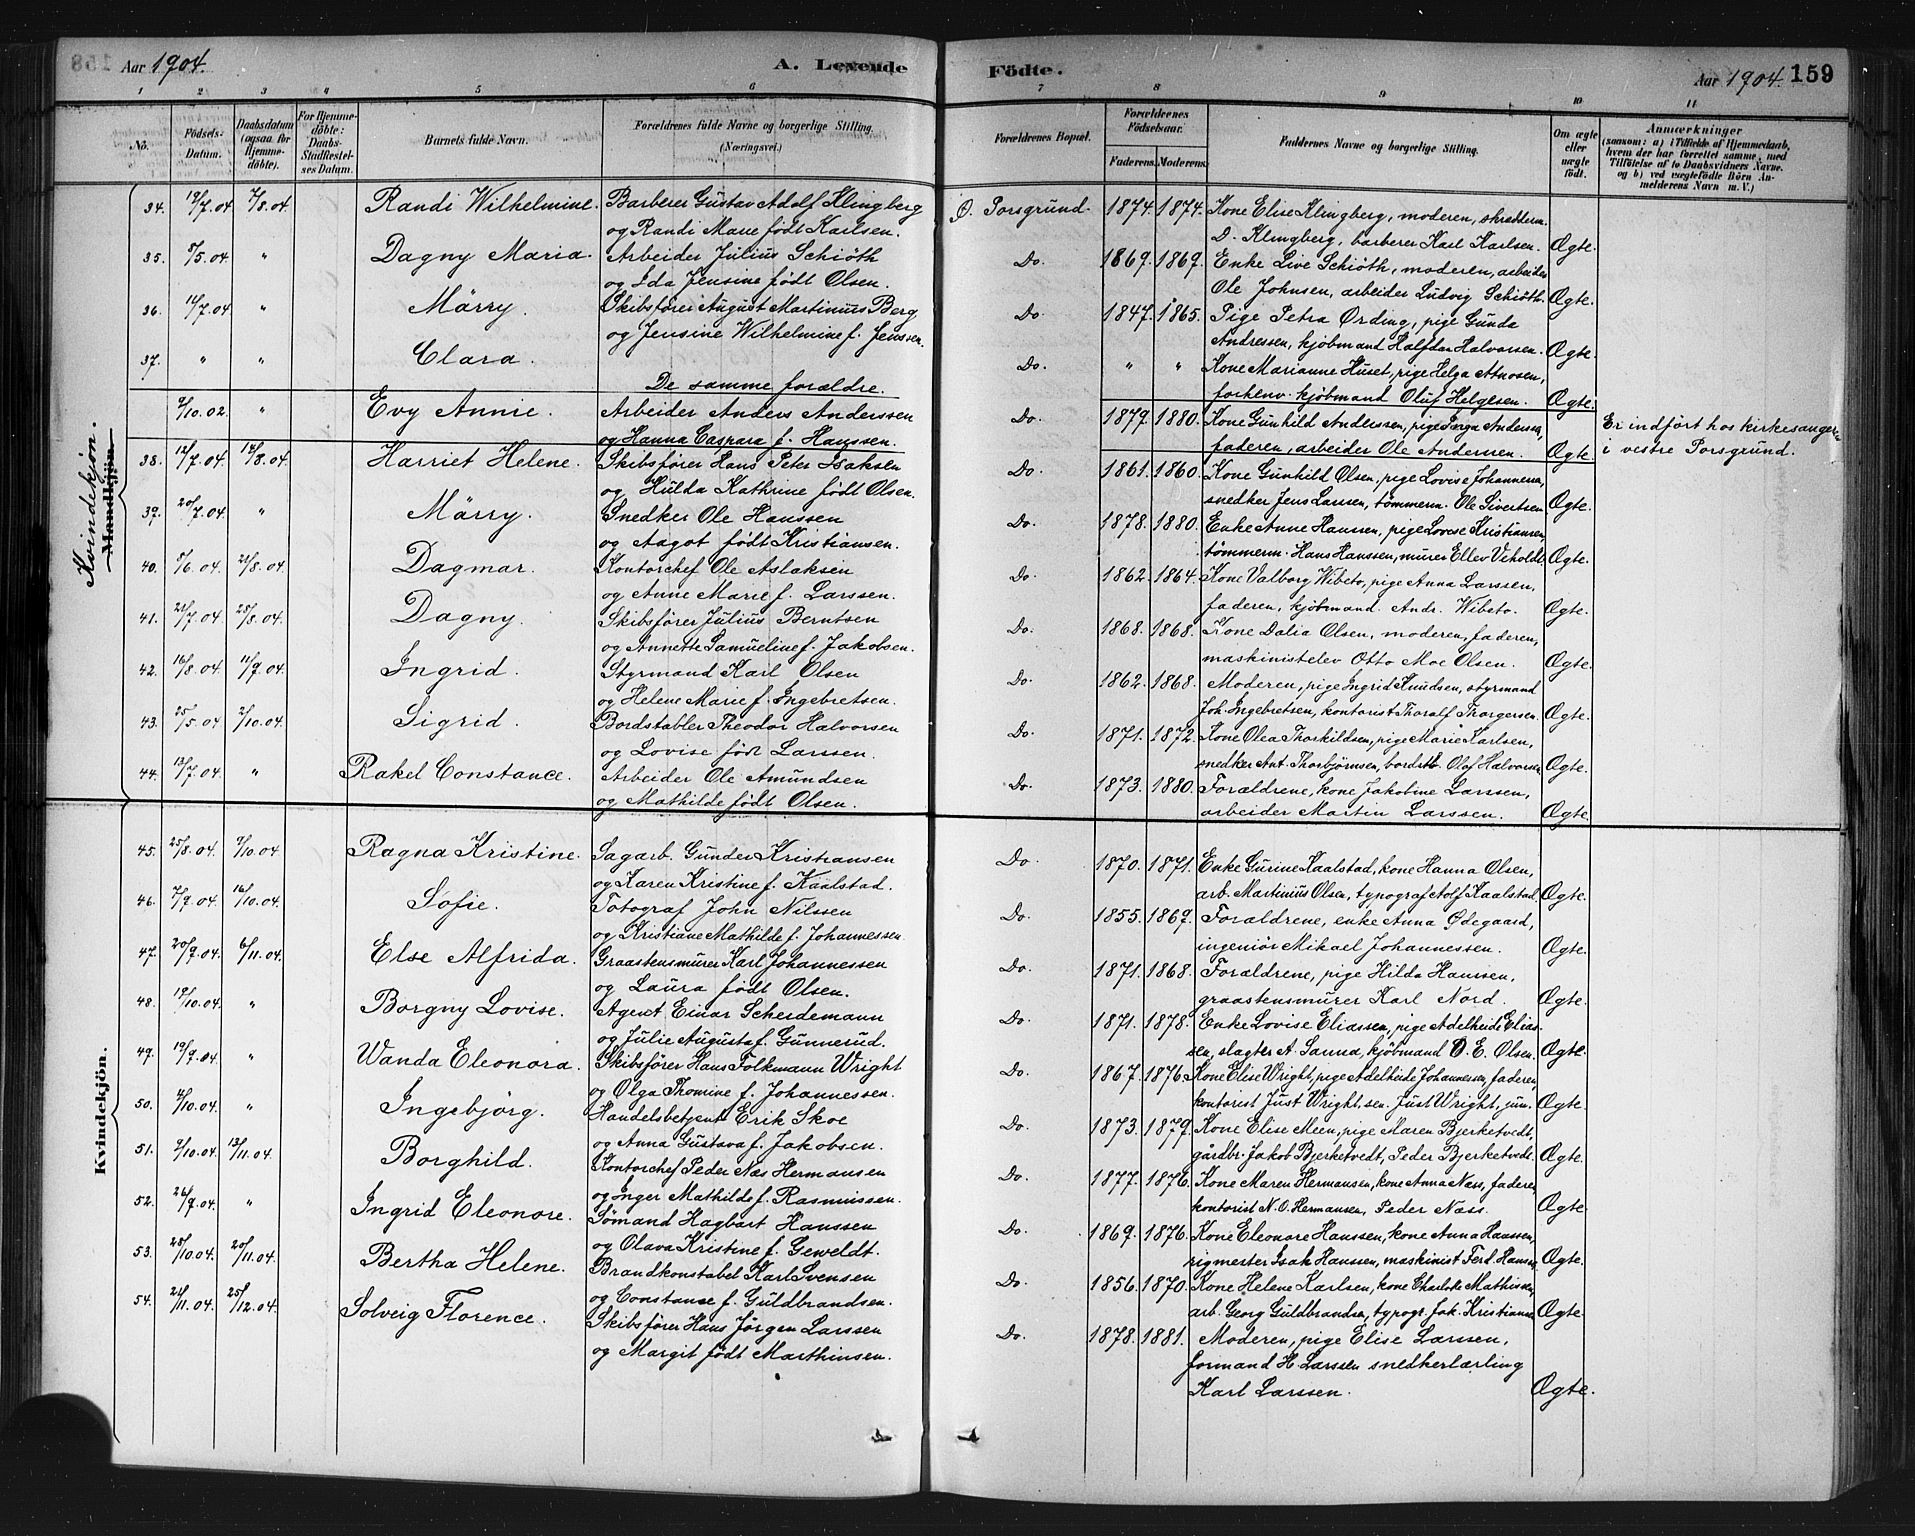 Aar 1904.
A. Levende
1 2 3 4 5 6
No.
Födsels-Datum.
Daabsdatum (ogsaa for Hjemmedöbte).
For Hjemmedöbte: Daabs-Stadfæstelses Datum.
Barnets fulde Navn.
Forældrenes fulde Navne og borgerlige Stilling. (Næringsvei.)
Kvindekjön.
Mandkjön.
34. 19/7.04 7/8.04. Randi Wilhelmine. Barberer Gustav Adolf Klingberg
og Randi Marie född Karlsen.
35. 5/5.04. " Dagny Maria. Arbeider Julius Schiöth
og Ida Jensine född Olsen.
36. 11/7.04 " Märry. Skibsförer August Martinus Berg
og Jensine Wilhelmine f. Jenssen.
37. " " Clara.
De samme forældre.
9/10.02. " Evy Annie. Arbeider Anders Anderssen
og Hanna Caspara f. Hanssen.
38. 12/7.04. 14/8.04. Harriet Helene. Skibsförer Hans Peter Isaksen
og Hulda Kathrine född Olsen.
39. 20/7.04. " Märry. Snedker Ole Hanssen
og Aagot född Kristiansen.
40. 5/6.04. 21/8.04. Dagmar. Kontorchef Ole Aslaksen
og Anne Marie f. Larssen.
41. 21/7.04. 28/8.04. Dagny. Skibsförer Julius Berntsen
og Annette Samueline f. Jakobsen.
42. 16/8.04. 11/9.04. Ingrid. Styrmand Karl Olsen
og Helene Marie f. Ingebretsen.
43. 25/5.04. 2/10.04. Sigrid. Bordstabler Theodor Halvorsen
og Lovise född Larssen.
44. 13/7.04. " Rakel Constance. Arbeider Ole Amundsen
og Mathilde född Olsen.
Kvindekjön.
45. 25/8.04. 9/10.04 Ragna Kristine. Sagarb. Gunder Kristiansen
og Karen Kristine f. Kaalstad.
46. 7/9.04. 16/10.04. Sofie. Fotograf John Nilssen
og Kristiane Mathilde f. Johannessen.
47. 20/9.04. 6/11.04. Else Alfrida. Graastensmurer Karl Johannessen
og Laura född Olsen.
48. 19/10.04. " Borgny Lovise. Agent Einar Scherdemann
og Julie Augusta f. Gunnerud.
49. 19/9.04. " Wanda Eleonora. Skibsförer Hans Folkmann Wright
og Olga Thomine f. Johannessen.
50. 4/10.04. " Ingebjörg. Handelsbetjent Erik Skoe
og Anna Gustava f. Jakobsen.
51. 9/10.04. 13/11.04. Borghild. Kontorchef Peder Næs Hermansen
og Inger Mathilde f. Rasmussen.
52. 26/9.04. " Ingrid Eleonore. Sömand Hagbart Hanssen
og Olava Kristine f. Geweldt.
53. 28/10.04. 20/11.04. Bertha Helene. Brandkonstabel Karl Svensen
og Constance f. Guldbrandsen.
54. 21/11.04. 25/12.04. Solveig Florence. Skibsförer Hans Jörgen Larssen
og Margit född Marthinsen.
Födte.
Aar 1904. 159
7 8 9 10 11
Forældrenes Bopæl.
Forældrenes Födselsaar.
Faderens. Moderens.
Faddernes Navne og borgerlige Stilling.
Om ægte eller uægte födt.
Anmærkninger
(saasom: a) i Tilfælde af Hjemmedaab, hvem der har forrettet samme, med Tilföielse af to Daabsvidners Navne, og b) ved uægtefödte Börn Anmelderens Navn m. V.)
Ö. Porsgrund. 1874. 1874. Kone Elise Klingberg, moderen, skræderm.
D. Klingberg, barberer Karl Karlsen. Ægte.
Do. 1869. 1869. Enke Live Schiöth, moderen, arbeider
Ole Johnsen, arbeider Ludvig Schiöth. Ægte.
Do. 1847. 1865. Pige Petra Ørding, pige Gunda
Andressen, kjöbmand Halfdan Halvorsen. Ægte.
Do. " " Kone Marianne Huset, pige Helga
forhenv. kjöbmand Oluf Helgesen. Ægte.
Do. 1879. 1880. Kone Gunhild Anderssen, pige Inga Anderssen,
faderen, arbeider Ole Anderssen. Ægte. Er indfört hos kirkesangeren
i vestre Porsgrund.
Do. 1861. 1860. Kone Gunhild Olsen, pige Lovise Johannessen,
snedker Jens Larssen, tömmerm. Ole Sivertsen. Ægte.
Do. 1878. 1880. Enke Anne Hanssen, pige Lovise Kristiansen,
tömmerm. Hans Hanssen, murer Ellev Veholdt. Ægte.
Do. 1862. 1864. Kone Valborg Wibeto, pige Anna Larssen,
faderen, kjöbmand. Andr. Wibeto. Ægte.
Do. 1868. 1868. Kone Dalia Olsen, moderen, faderen,
maskinistelev Otto Moe Olsen. Ægte.
Do. 1862. 1868. Moderen, pige Ingrid Knudsen, styrmand
Joh. Ingebretsen, kontorist Thoralf Thorgersen. Ægte.
Do. 1871. 1872. Kone Olea Thorkildsen, pige Marie Karlsen,
snedker Ant. Thorbjörnsen, bordstb. Olaf Halvorsen. Ægte.
Do. 1873. 1880. Forældrene, kone Jakobine Larssen,
arbeider Martin Larssen. Ægte.
Do. 1870. 1871. Enke Gurine Kaalstad, kone Hanna Olsen,
arb. Martinius Olsen, typograf Adolf Kaalstad. Ægte.
Do. 1855. 1869. Forældrene, enke Anna Ødegaard,
ingeniör Mikael Johannessen. Ægte.
Do. 1871. 1868. Forældrene, pige Hilda Hanssen,
graastensmurer Karl Nord. Ægte.
Do. 1871. 1878. Enke Lovise Eliassen, pige Adelheid Elias-
sen, slagter A. Sanna, kjöbmand O. E. Olsen. Ægte.
Do. 1867. 1876. Kone Elise Wright, pige Adelheide Johannessen, faderen,
kontorist Just Wright, sen. Just Wright, jun. Ægte.
Do. 1873. 1879. Kone Elise Meen, pige Maren Bjerketvedt,
gårdbr. Jakob Bjerketvedt, Peder Bjerketvedt. Ægte.
Do. 1877. 1876. Kone Maren Hermansen, kone Anna Næss, faderen,
kontorist N. O. Hermansen, Peder Næss. Ægte
Do. 1869. 1876. Kone Eleonore Hanssen, kone Anna Hanssen,
rigmester Isak Hanssen, maskinist Ferd. Hanssen. Ægte.
Do. 1856. 1870. Kone Helene Karlsen, kone Charlotte Mathissen,
arb. Georg Guldbrandsen, typogr. Jak. Kristiansen. Ægte.
Do. 1878. 1881. Moderen, pige Elise Larssen,
formand H. Larssen snedkerlærling
Karl Larssen. Ægte.